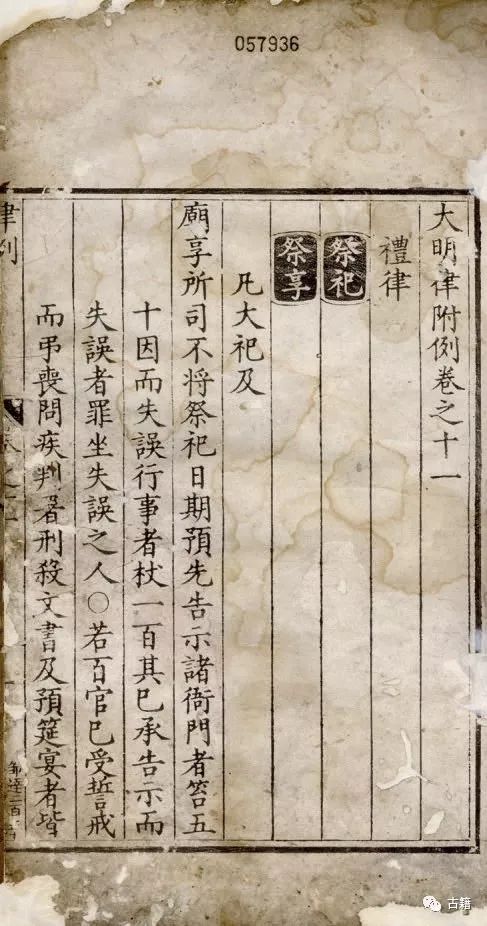 057936
大明律附例卷之十一
禮律
祭祀
祭享
凡大祀及
廟享所司不将祭祀日期預先告示諸衙門者笞五
十因而失誤行事者杖一百其已承告示而
失誤者罪坐失誤之人〇若百官已受誓戒
而弔喪問疾判署刑殺文書及預筵宴者皆
律例
古籍